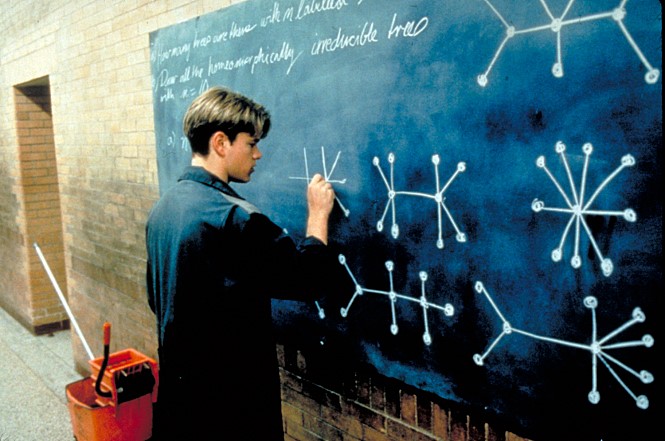 How many trees are there with n labelled
Draw all the homeomorphically irreducible trees
with n = 10
a)